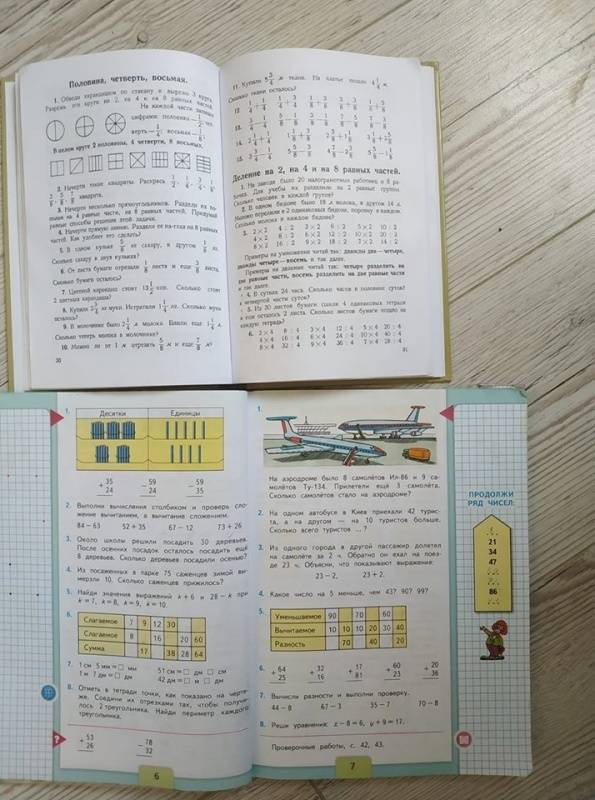 Половина, четверть, восьмая.
1. Обведи карандашом по стакану и вырежь 3 круга.
Разрежь эти круги на 2, на 4 и на 8 равных частей.
На каждой части запиши
цифрами: половина — 1/2, чет-
верть — 1/4, восьмая — 1/8.
В целом круге 2 половины, 4 четверти, 8 восьмых.
2. Начерти такие квадраты. Раскрась 1/2, 1/4, 3/4, 1/8,
3/8, 5/8, 7/8 квадрата.
3. Начерти несколько прямоугольников. Раздели их по-
полам на 4 равные части, на 8 равных частей. Придумай
разные способы решения этой задачи.
4. Начерти прямую линию. Раздели её на-глаз на 8 равных
частей. Как удобнее это сделать?
5. В одном кульке 5/8 кг сахару, в другом 1/8 кг.
Сколько сахару в двух кульках?
6. От листа бумаги отрезали 1/8 листа и ещё 3/8 листа.
Сколько бумаги осталось?
7. Цветной карандаш стоит 13 1/2 коп. Сколько стоят
2 цветных карандаша?
муки. Истратили
Сколько муки
осталось?
9. В молочнике было 2 1/4 л молока. Влили ещё 1 1/4 л.
Сколько теперь молока в молочнике?
10. Можно ли от 1 м отрезать 5/8 м и ещё 7/8 м?
30
11. Купили 5 3/4 м ткани. На платье пошло 4 1/4 м.
Сколько ткани осталось?
12.
13.
14.
15.
Деление на 2, на 4 и на 8 равных частей.
1. На заводе было 20 малограмотных рабочих и 8 ра-
Для учёбы их разделили на 2 равные группы.
Сколько человек в каждой группе?
2. В одном бидоне было 18 л молока, в другом 14 л.
Молоко перелили в 2 одинаковых бидона, поровну в каждом.
Сколько молока в каждом бидоне?
3. 2×2 4:2 3×2 6:2 5×2 10:2
4×2 8:2 6×2 12:2 10×2 20:2
8×2 16:2 9×2 18:2 7×2 14:2
Примеры на умножение читай так: дважды два — четыре,
дважды четыре — восемь и так далее.
Примеры на деление читай так: четыре разделить на
две равные части, восемь разделить на две равные части
и так далее.
4. В сутках 24 часа. Сколько часов в половине суток?
в четвертой части суток?
5. Из 30 листов бумаги сшили 4 одинаковых тетради
и ещё осталось 2 листа. Сколько листов бумаги пошло на
каждую тетрадь?
6. 2×4 8:4 3×4 12:4 5×4 20:4
4×4 16:4 6×4 24:4 10×4 40:4
8×4 32:4 9×4 36:4 7×4 28:4
31
1.
Десятки Единицы
+35 −59 −59
24 24 35
2. Выполни вычисления столбиком и проверь сло-
жение вычитанием, а вычитание сложением.
84−63 52+35 67−12 73+26
3. Около школы решили посадить 30 деревьев.
После осенних посадок осталось посадить ещё
8 деревьев. Сколько деревьев посадили осенью?
4. Из посаженных в парке 75 саженцев зимой вы-
мерзли 10. Сколько саженцев прижилось?
5. Найди значения выражений k+6 и 28−k при
k=7, k=8, k=9, k=10.
6. Слагаемое 7 9 12 30
Слагаемое 8 16 20 60
Сумма 17 38 28 64
7. 1 см 5 мм=□ мм 51 см=□ дм □ см
1 м 7 дм=□ дм 42 дм=□ м □ дм
8. Отметь в тетради точки, как показано на черте-
же. Соедини их отрезками так, чтобы получи-
лось 2 треугольника. Найди периметр каждого
треугольника.
? +53 −78
26 32
6
1.
На аэродроме было 8 самолётов Ил-86 и 9 са-
молётов Ту-134. Прилетели ещё 3 самолёта.
Сколько самолётов стало на аэродроме?
2. На одном автобусе в Киев приехали 42 турис-
та, а на другом — на 10 туристов больше.
Сколько всего туристов ... ?
3. Из одного города в другой пассажир долетел
на самолёте за 2 ч. Обратно он ехал на поез-
де 23 ч. Объясни, что показывают выражения:
23−2, 23+2.
4. Какое число на 5 меньше, чем 43? 90? 99?
5. Уменьшаемое 90 70 60
Вычитаемое 10 10 20 30 40
Разность 70 40 20
6. +64 +32 +17 +60 +20
25 16 81 23 36
7. Вычисли разности и выполни проверку.
44−8 67−3 35−7 70−8
8. Реши уравнения: z−8=6, y+9=17.
Проверочные работы, с. 42, 43.
7
ПРОДОЛЖИ
РЯД ЧИСЕЛ:
21
34
47
86